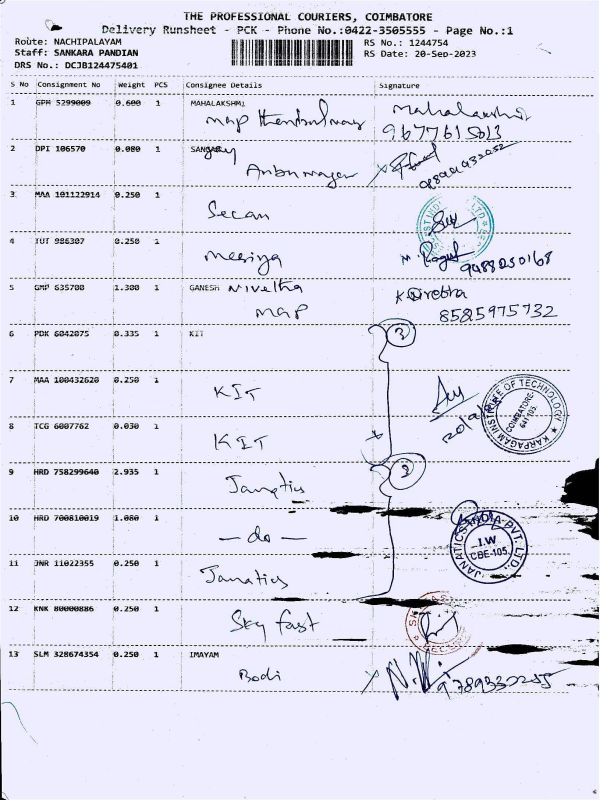 THE PROFESSIONAL COURIERS, COIMBATORE
Delivery Runsheet - PCK - Phone No.:0422-3505555 - Page No.:1
Route: NACHIPALAYAM RS No.: 1244754
Staff: SANKARA PANDIAN RS Date: 20-Sep-2023
DRS No.: DCJB124475401
S No Consignment No Weight PCS Consignee Details Signature
1 GPM 5299009 0.600 1 MAHALAKSHMI
Map Mahalakshmi
9677615013
2 DPI 106570 0.080 1
Anbunagar
3 MAA 101122914 0.250 1
Secan
4 TUT 986307 0.250 1
9488250168
5 GMP 635700 1.300 1 GANESH Nivetha
Map 8525975732
6 PDK 6042075 0.335 1 KIT 3
7 MAA 100432620 0.250 1
KIT
KARPAGAM INSTITUTE OF TECHNOLOGY
COIMBATORE
641 105.
8 TCG 6007762 0.030 1
KIT
9 HRD 758299640 2.935 1
Janatics
10 HRD 700810019 1.080 1
— do —
JANATICS INDIA PVT. LTD.
I.W
CBE-105.
11 JNR 11022355 0.250 1
Janatics
12 KNK 80000886 0.250 1
Sky fast
13 SLM 328674354 0.250 1 IMAYAM
Bodi